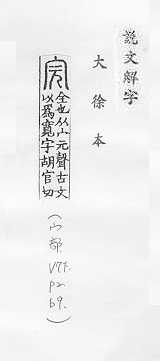 說文解字
大徐本
完
全也从宀元聲古文
以爲寬字胡官切
(宀部
p2
b9.)